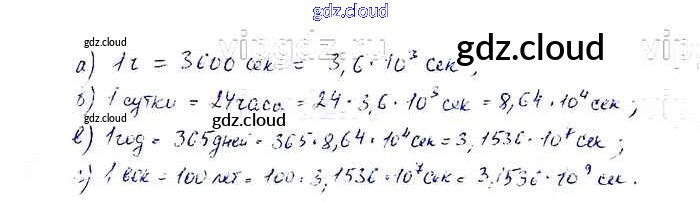 gdz.cloud
gdz.cloud
gdz.cloud
а) 1ч = 3600 сек = 3,6·10³ сек;
б) 1 сутки = 24часа = 24·3,6·10³ сек = 8,64·10⁴ сек;
gdz.cloud
gdz.cloud
в) 1 год = 365дней = 365·8,64·10⁴сек = 3,1536·10⁷ сек;
г) 1 век = 100 лет = 100·3,1536·10⁷сек = 3,1536·10⁹ сек.